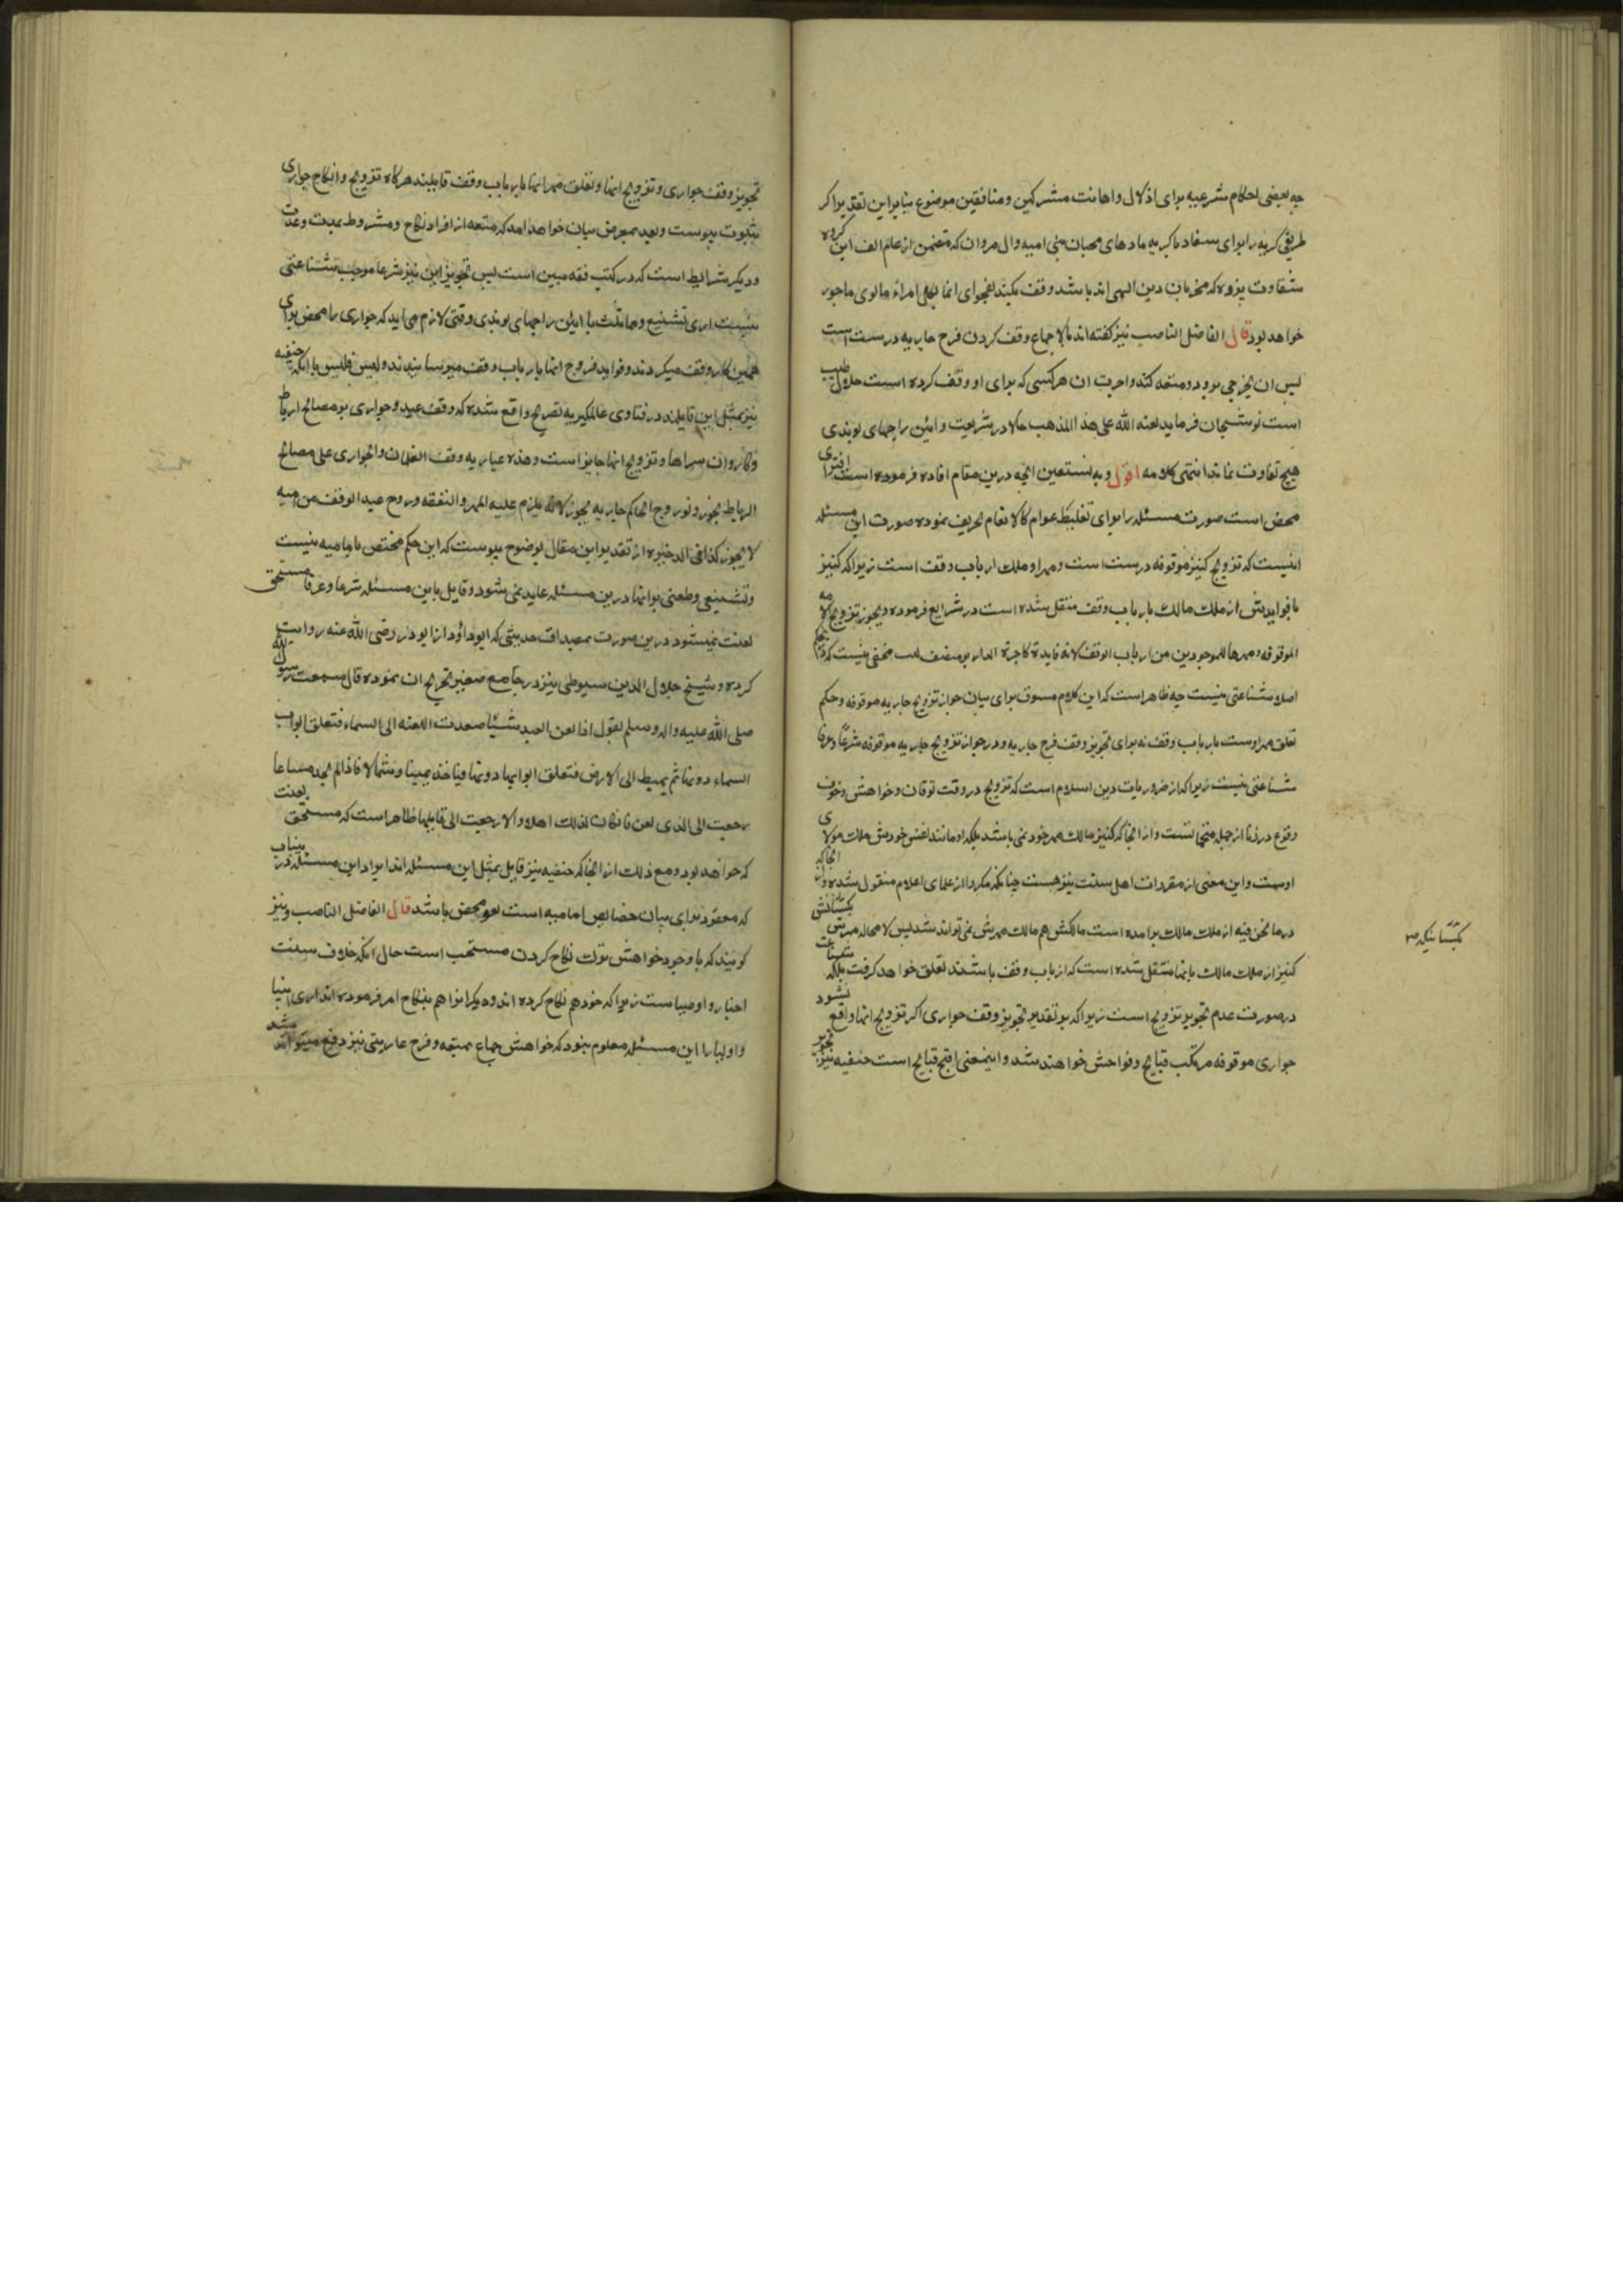 چه بعضی احکام شرعیه برای اذلال و اهانت مشرکین و منافقین موضوع بنابراین تقدیر اگر
طریقی کریه را برای سفاد با کریه مادهای محبان بنی امیه وال مروان که متضمن از عام الف این گروه
شقاوت پژوه که مخربان دین الهی اند باشد وقف بکند بفحوای انما لکل امرء ما نوی ماجور
خواهد بود قال الفاضل الناصب نیز گفته اند بالاجماع وقف کردن فرج جاریه درست است
پس ان بخرجی برود و متعه کند و اجرت ان هر کسی که برای او وقف کرده است حلال طیب
است نوشجان فرماید لعنه الله علی هذا المذهب حالا در شریعت و ائین راجهای بوندی
هیچ تفاوت نماند انتهی کلامه اقول و به نستعین انچه درین مقام افاده فرموده است افترای
محض است صورت مسئله را برای تغلیط عوام کالانعام تحریف نموده صورت این مسئله
اینست که تزویج کنیز موقوفه درست است و مهر او ملک ارباب وقف است زیرا که کنیز
با فوایدش از ملک مالک بارباب وقف منتقل شده است در شرایع فرموده و یجوز تزویج الامه
الموقوفه و مهرها للموجودین من ارباب الوقف لانه فایدة کاجرة الدار بر منصف لبیب مخفی نیست که درین حکم
اصلا شناعتی نیست چه ظاهر است که این کلام مسوق برای بیان جواز تزویج جاریه موقوفه و حکم
تعلق مهر اوست بارباب وقف نه برای تجویز وقف فرج جاریه و در جواز تزویج جاریه موقوفه شرعا و عرفا
شناعتی نیست زیرا که از ضروریات دین اسلام است که تزویج در وقت توقان و خواهش و خوف
وقوع در زنا از جمله است و از انجا که کنیز مالک مهر خود نمی باشد بلکه او مانند نفس خودش ملک مولای
اوست و این معنی از مقررات اهل سنت نیز هست چنانکه مکرر از علمای اعلام منقول شده و از انجا که
در ما نحن فیه از ملک مالک برامده است مالکش هم مالک مهرش نمی تواند شد پس لامحاله مهرش بکسانکش
کنیز از ملک مالک بانها منتقل شده است که ارباب وقف باشند تعلق خواهد گرفت بلکه شناعت
در صورت عدم تجویز تزویج است زیرا که بر تقدیر تجویز وقف جواری اگر تزویج انها واقع نشود
جواری موقوفه مرتکب قبایح و فواحش خواهند شد و اینمعنی اقبح قبایح است حنفیه نیز تجویز
بکسانیکه
تجویز وقف جواری و تزویج انها و تعلق مهر انها بارباب وقف قایلیند هرگاه تزویج و انکاح جواری
بثبوت پیوست و بعید بمعرض بیان خواهد امد که متعه از افراد نکاح و مشروط بمدت و عدت
و دیگر شرایط است که در کتب فقه مبین است پس تجویز این نیز شرعا موجب شناعتی
نیست اری تشنیع و مماثلث با ائین راجهای بوندی وقتی لازم می اید که جواری را محض برای
همین کار وقف میکردند و فواید فروج انها بارباب وقف میرسانیدند و لیس فلیس با انکه حنفیه
نیز بمثل این قایلند در فتاوی عالمگیریه تصریح واقع شده که وقف عبید و جواری بر مصالح ارباط
و کاروان سراها و تزویج انها جایز است و هذه عبارته وقف الغلمان والجواری علی مصالح
الرباط یجوز و لو زوج الحاکم جاریه یجوز لانه یلزم علیه المهر والنفقه و زوج عبد الوقف من امته
لا یجوز کذا فی الذخیره از تقدیر این مقال بوضوح پیوست که این حکم مختص بامامیه نیست
و تشنیعی و طعنی بر انها درین مسئله عاید نمی شود و قایل باین مسئله شرعا و عرفا مستحق
لعنت نمیشود درین صورت بمصداق حدیثی که ابو داؤد از ابو درداء رضی الله عنه روایت
کرده و شیخ جلال الدین سیوطی نیز در جامع صغیر تخریج ان نموده قال سمعت رسول الله
صلی الله علیه واله وسلم یقول اذا لعن العبد شیئا صعدت اللعنه الی السماء فتغلق ابواب
السماء دونها ثم یهبط الی الارض فتغلق ابوابها دونها فیاخذ یمینا و شمالا فاذا لم یجد مساغا
رجعت الی الذی لعن فان کان لذلک اهلا والا رجعت الی قایلها ظاهر است که مستحق لعنت
که خواهد بود و مع ذلک از انجا که حنفیه نیز قایل بمثل این مسئله اند ایراد این مسئله در بیناب
که معقود برای بیان خصایص امامیه است لغو محض باشد قال الفاضل الناصب و نیز
گویند که با وجود خواهش ترک نکاح کردن مستحب است حال انکه خلاف سنت
انبیا و اوصیاست زیرا که خود هم نکاح کرده اند و دیگرانرا هم بنکاح امر فرموده اند اری انبیا
و اولیا را این مسئله معلوم نبود که خواهش جماع بمتعه و فرج عاریتی نیز دفع میتواند شد